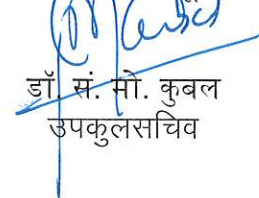 डॉ. सं. मो. कुबल
उपकुलसचिव